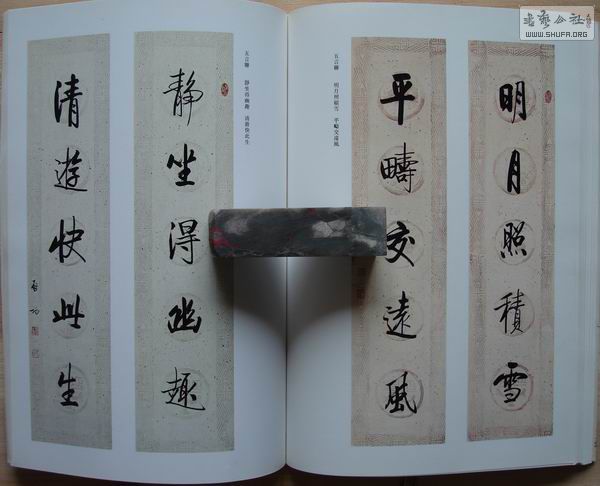 明月照積雪
平疇交遠風
五言聯 明月照積雪 平疇交遠風
五言聯 靜坐得幽趣 清遊快此生
靜坐得幽趣
清遊快此生
啓功
书艺公社
WWW.SHUFA.ORG